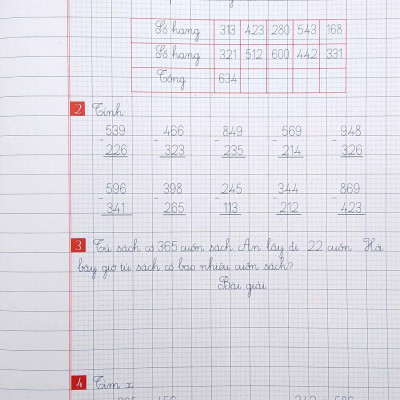 Số hạng 313 423 280 543 168
Số hạng 321 512 600 442 331
Tổng 634
2 Tính
539 466 849 569 948
- - - - -
226 323 235 214 326
596 398 245 344 869
- - - - -
341 265 113 212 423
3 Tủ sách có 365 cuốn sách An lấy đi 22 cuốn Hỏi
bây giờ tủ sách có bao nhiêu cuốn sách?
Bài giải
4 Tìm x